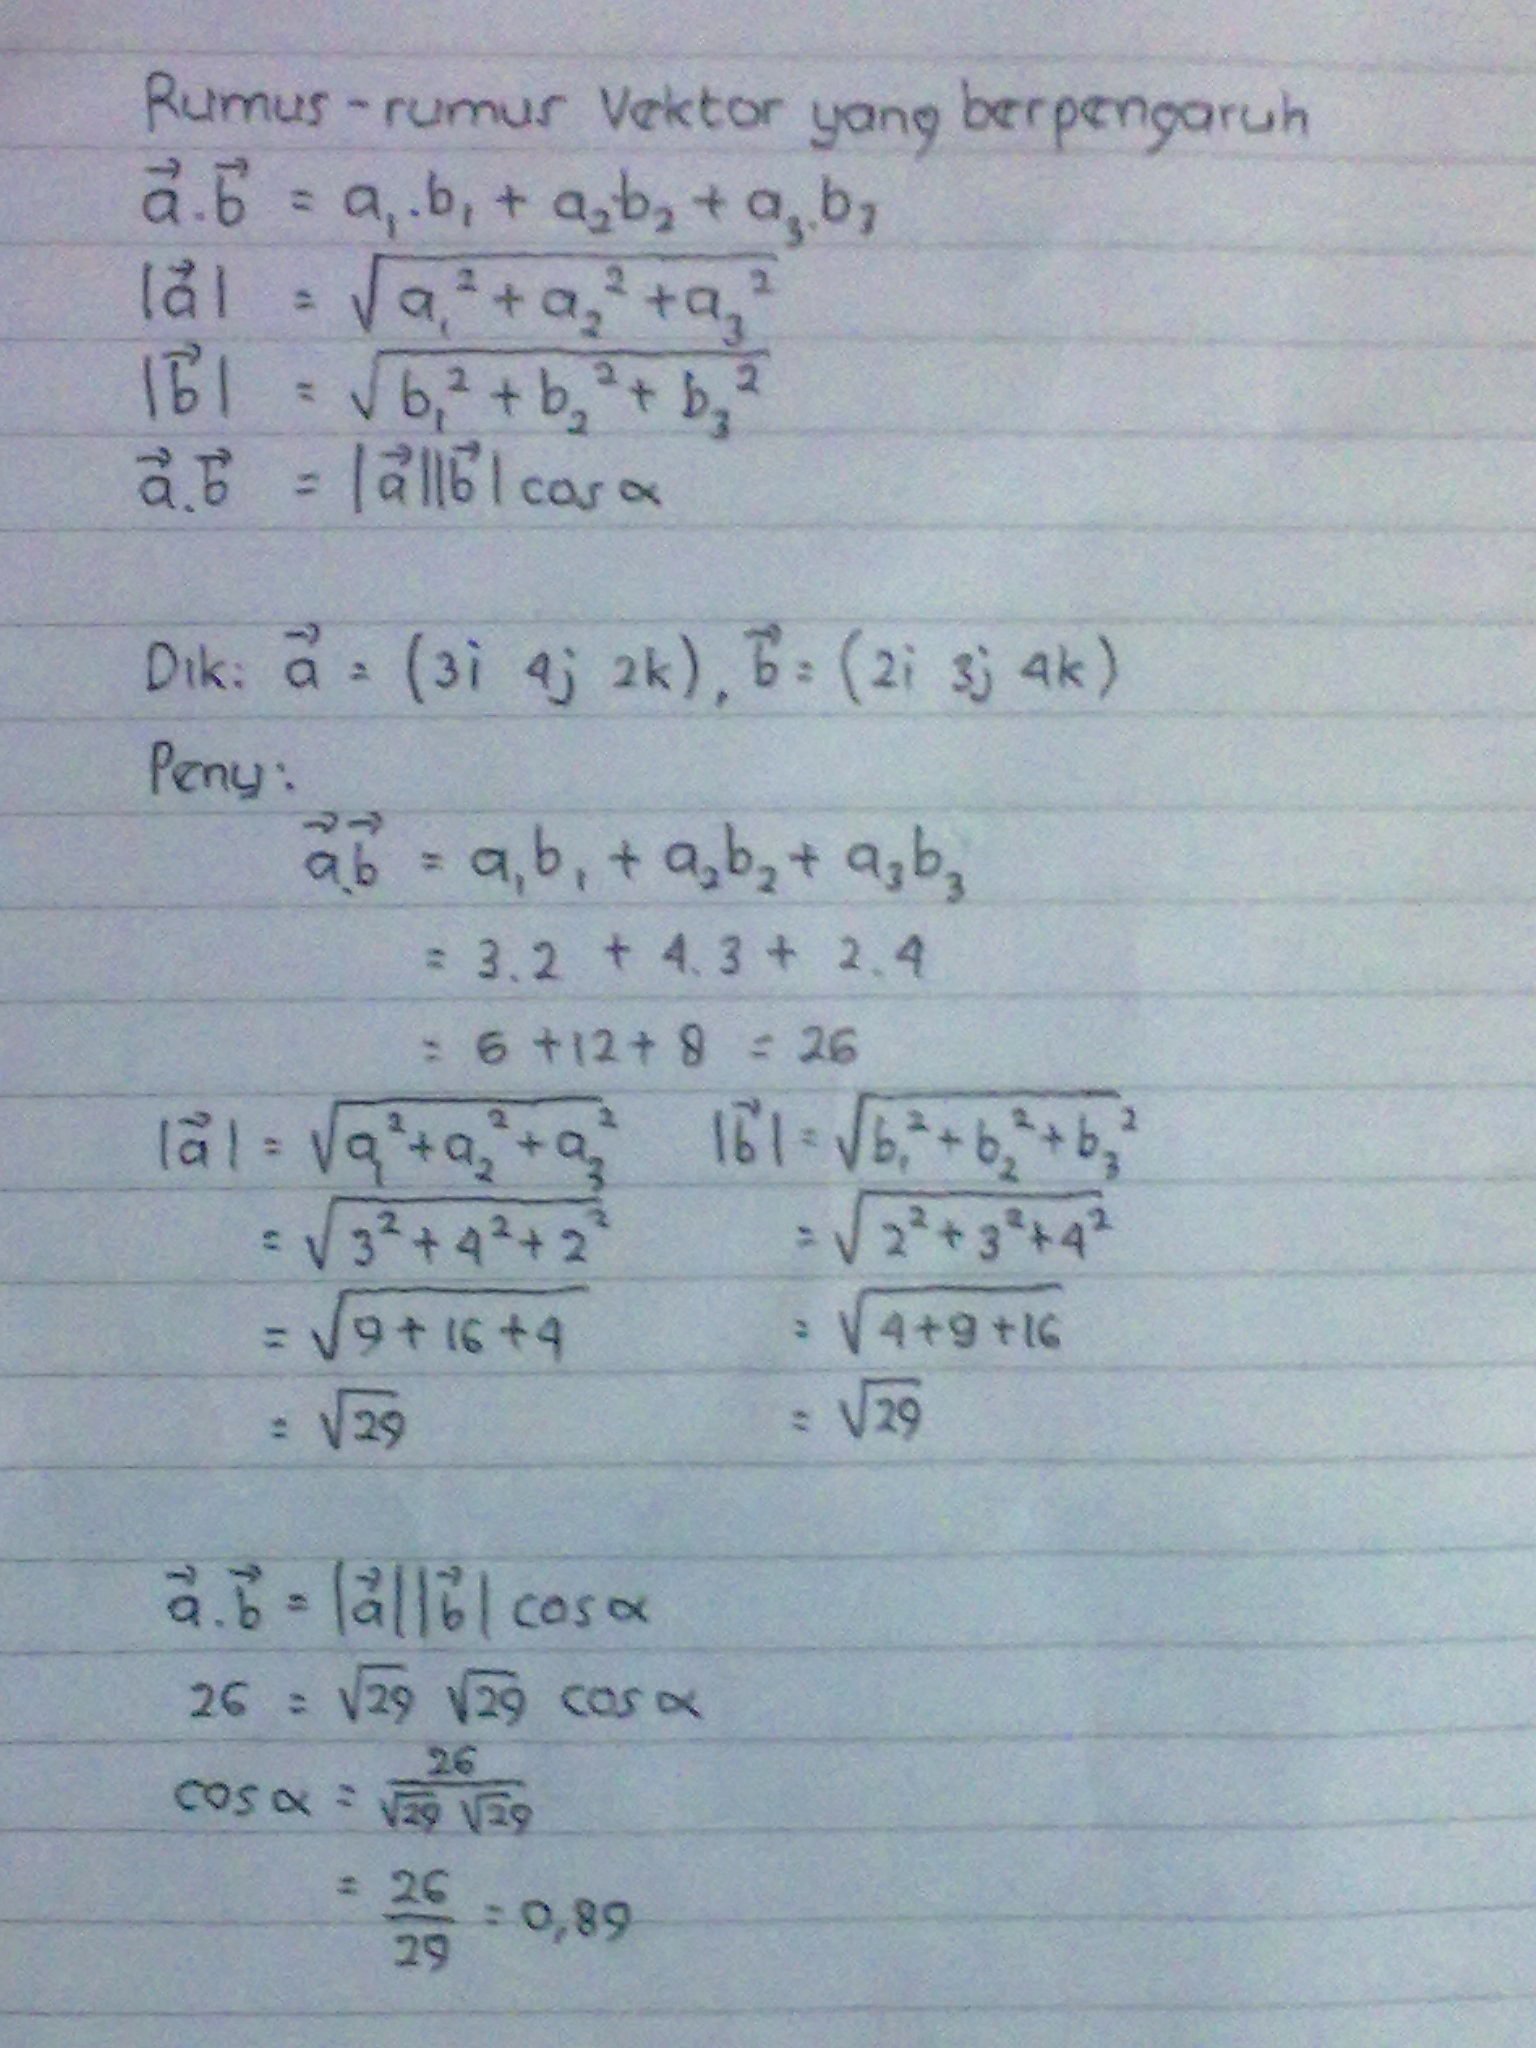 Rumus-rumus Vektor yang berpengaruh
a⃗.b⃗ = a₁.b₁ + a₂b₂ + a₃.b₃
|a⃗| = √(a₁² + a₂² + a₃²)
|b⃗| = √(b₁² + b₂² + b₃²)
a⃗.b⃗ = |a⃗||b⃗| cos α
Dik: a⃗ = (3i 4j 2k), b⃗ = (2i 3j 4k)
Peny:
a⃗.b⃗ = a₁b₁ + a₂b₂ + a₃b₃
= 3.2 + 4.3 + 2.4
= 6 + 12 + 8 = 26
|a⃗| = √(a₁² + a₂² + a₃²) |b⃗| = √(b₁² + b₂² + b₃²)
= √(3² + 4² + 2²) = √(2² + 3² + 4²)
= √(9 + 16 + 4) = √(4 + 9 + 16)
= √29 = √29
a⃗.b⃗ = |a⃗||b⃗| cos α
26 = √29 √29 cos α
cos α = 26/(√29 √29)
= 26/29 = 0,89